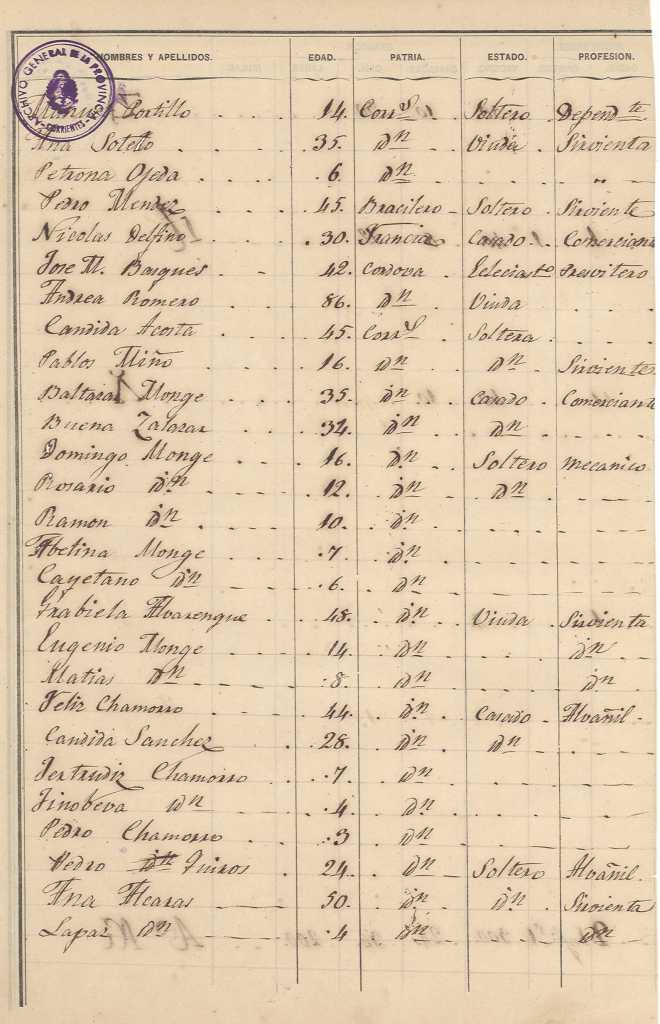 NOMBRES Y APELLIDOS. EDAD. PATRIA. ESTADO. PROFESION.
ARCHIVO GENERAL DE LA PROVINCIA CORRIENTES
Manuel Portillo 14. Corr.s Soltero Depend.te
Ana Sotelo 35. Dn Viuda Sirvienta
Petrona Ojeda 6. Dn "
Pedro Mendez 45. Bracilero Soltero Sirviente
Nicolas Delfino 30. Francia Casado Comerciante
Jose M. Barques 42. Cordova Eclecias.to Presvitero
Andrea Romero 86. Dn Viuda
Candida Acosta 45. Corr.s Soltera
Pablos Miño 16. Dn Dn Sirviente
Baltasar Monge 35. Dn Casado Comerciante
Buena Zalazar 34. Dn Dn
Domingo Monge 16. Dn Soltero mecanico
Rosario Dn 12. Dn Dn
Ramon Dn 10. Dn
Abelina Monge 7. Dn
Cayetano Dn 6. Dn
Grabiela Alvarengue 48. Dn Viuda Sirvienta
Eugenio Monge 14. Dn Dn
Matias Dn 8. Dn Dn
Feliz Chamorro 44. Dn Casado Alvañil
Candida Sanchez 28. Dn Dn
Gertrudiz Chamorro 7 Dn
Jinobeva Dn 4. Dn
Pedro Chamorro 3 Dn
Pedro Dn Quiros 24. Dn Soltero Alvañil
Ana Alcaras 50. Dn Dn Sirvienta
Lapaz Dn 4 Dn Dn